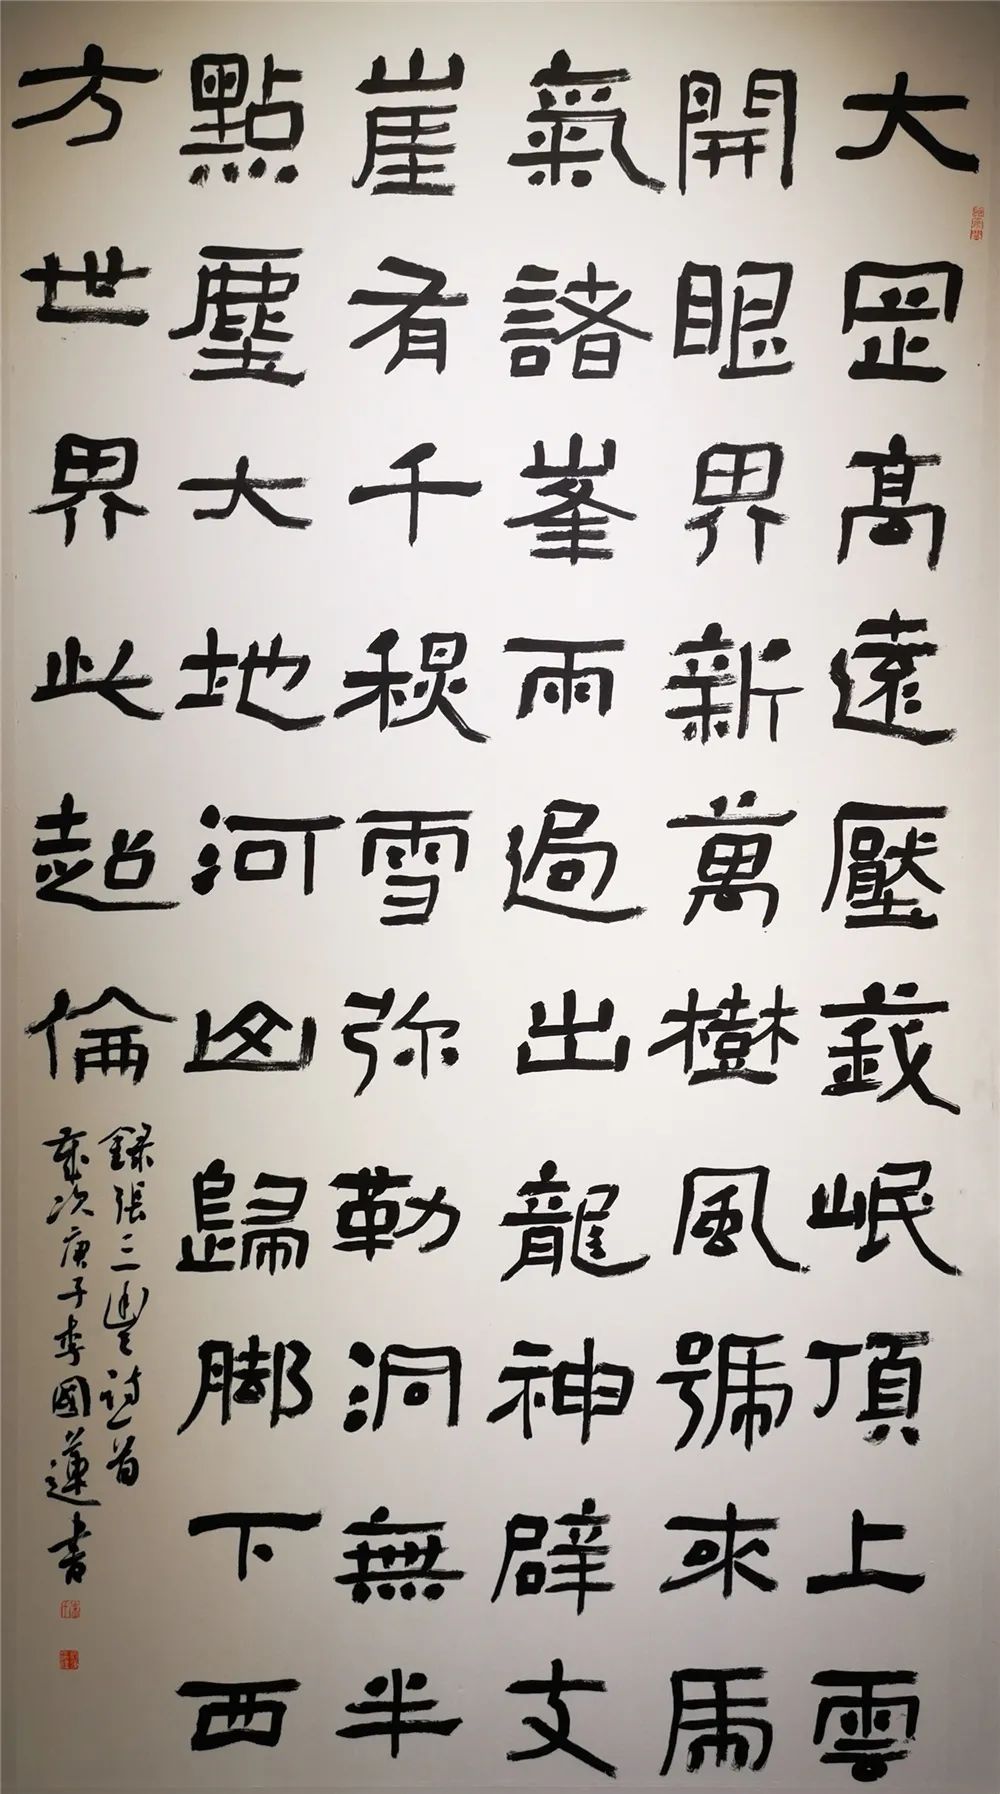 大罡高遠壓岷頂上雲
開眼界新萬樹風號來虎
氣諸峯雨過出龍神辟支
崖有千秋雪弥勒洞無半
點塵大地河山歸脚下西
方世界此超倫
錄張三豐詩一首
歲次庚子李國蓮書